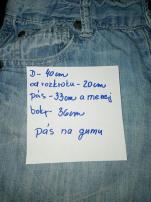 D - 40cm
od rozkroku - 20cm
pás - 33cm a menej
boky 36cm
pás na gumu